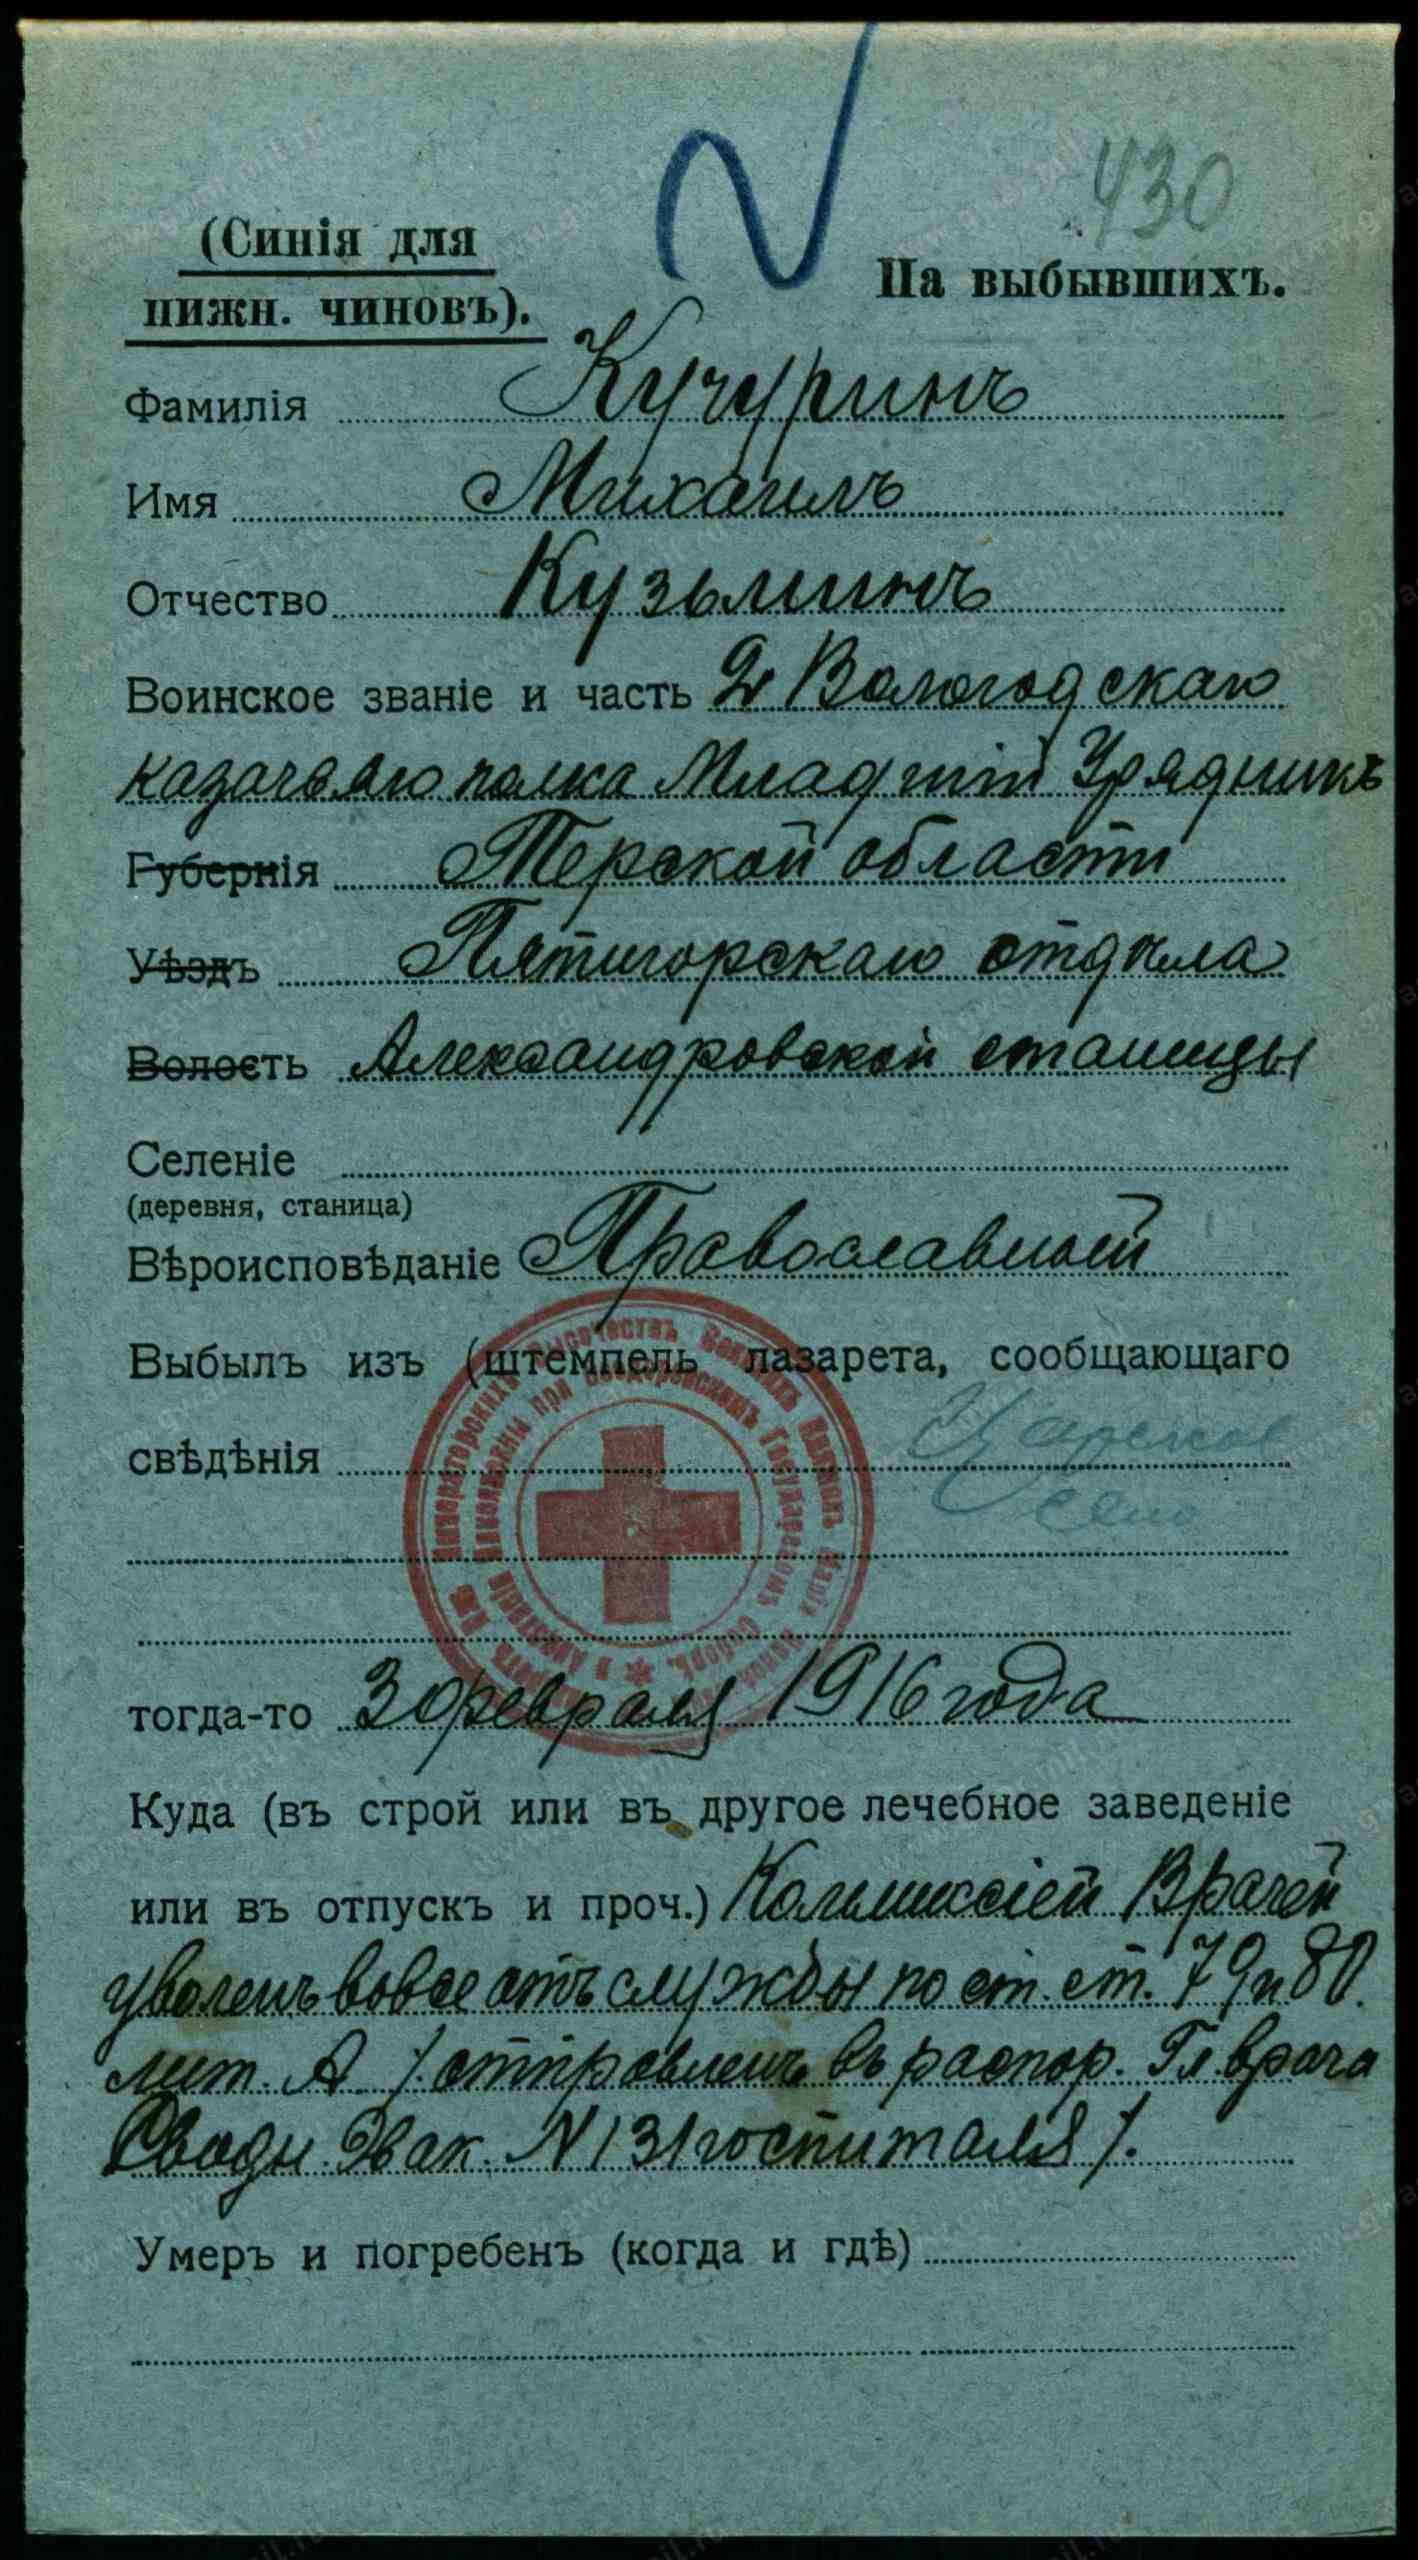 430
(Синія для
нижн. чиновъ).
На выбывшихъ.
Фамилія Кучуринъ
Имя Михаилъ
Отчество Кузьминъ
Воинское званіе и часть 2й Вологодскаго
казачьяго полка Младшій Урядникъ
Губернія Терской области
Уѣздъ Пятигорскаго отдѣла
Волость Александровской станицы
Селеніе
(деревня, станица)
Вѣроисповѣданіе Православный
Выбылъ изъ (штемпель лазарета, сообщающаго
свѣдѣнія Царское
Село
тогда-то 3 февраля 1916 года
Куда (въ строй или въ другое лечебное заведеніе
или въ отпускъ и проч.) Коммиссіей Врачей
уволенъ вовсе отъ службы по ст. ст. 79 и 80
лит. А /отправленъ въ распор. Гл. врача
Сводн. Эвак. N 131 госпиталя/.
Умеръ и погребенъ (когда и гдѣ)